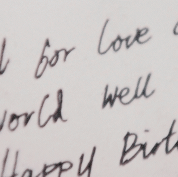 for love
world well
Happy Birt